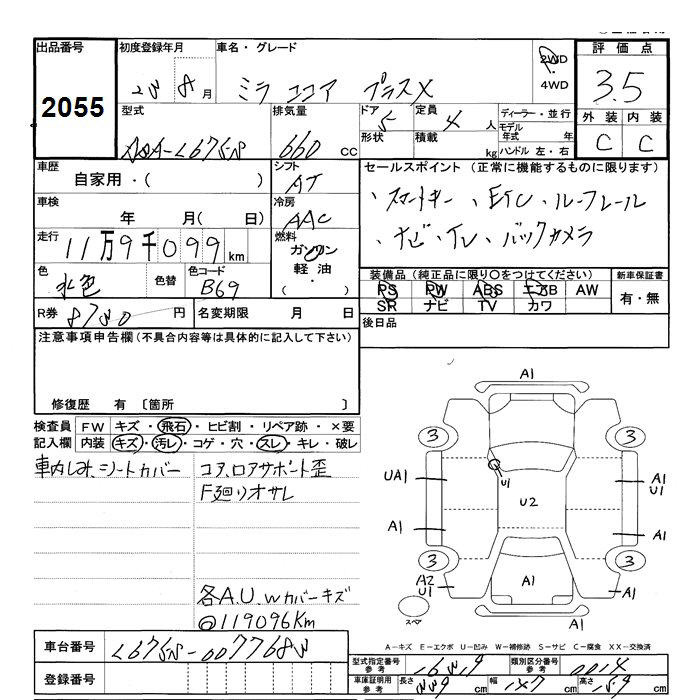 出品番号
2055
初度登録年月
8月
車名・グレード
ミラ ココア プラスX
2WD
4WD
評価点
3.5
外装 内装
C C
型式
排気量
660 CC
ドア 5
形状
定員 4 人
積載 kg
ディーラー・並行
モデル年式 年
ハンドル 左・右
車歴
自家用・( )
シフト
AT
車検
年 月( 日)
冷房
AAC
走行
11万9千099 km
燃料
ガソリン
軽油
・( )
色
水色
色替
色コード
B69
R券 8780 円
名変期限 月 日
セールスポイント (正常に機能するものに限ります)
、スマートキー、ETC、ルーフレール
、ナビ・TV、バックカメラ
装備品(純正品に限り〇をつけてください)
PS PW ABS エアB AW
SR ナビ TV カワ
新車保証書
有・無
後日品
注意事項申告欄(不具合内容等は具体的に記入して下さい)
修復歴 有 〔箇所 〕
検査員 FW キズ・飛石・ヒビ割・リペア跡・×要
記入欄 内装 キズ・汚レ・コゲ・穴・スレ・キレ・破レ
車内しみ、シートカバー
コア、ロアサポート歪
F廻りオサレ
各A.U.wカバーキズ
◎119096Km
A1
3 3
U1
UA1
U2
A1
U1
A1
A1
3 3
A2
U1
A1
A1
スペア
A1
A-キズ E-エクボ U-凹み W-補修跡 S-サビ C-腐食 XX-交換済
車台番号
登録番号
型式指定番号
参考
類別区分番号
参考
0014
車庫証明用
参考
長さ cm
幅 147 cm
高さ cm